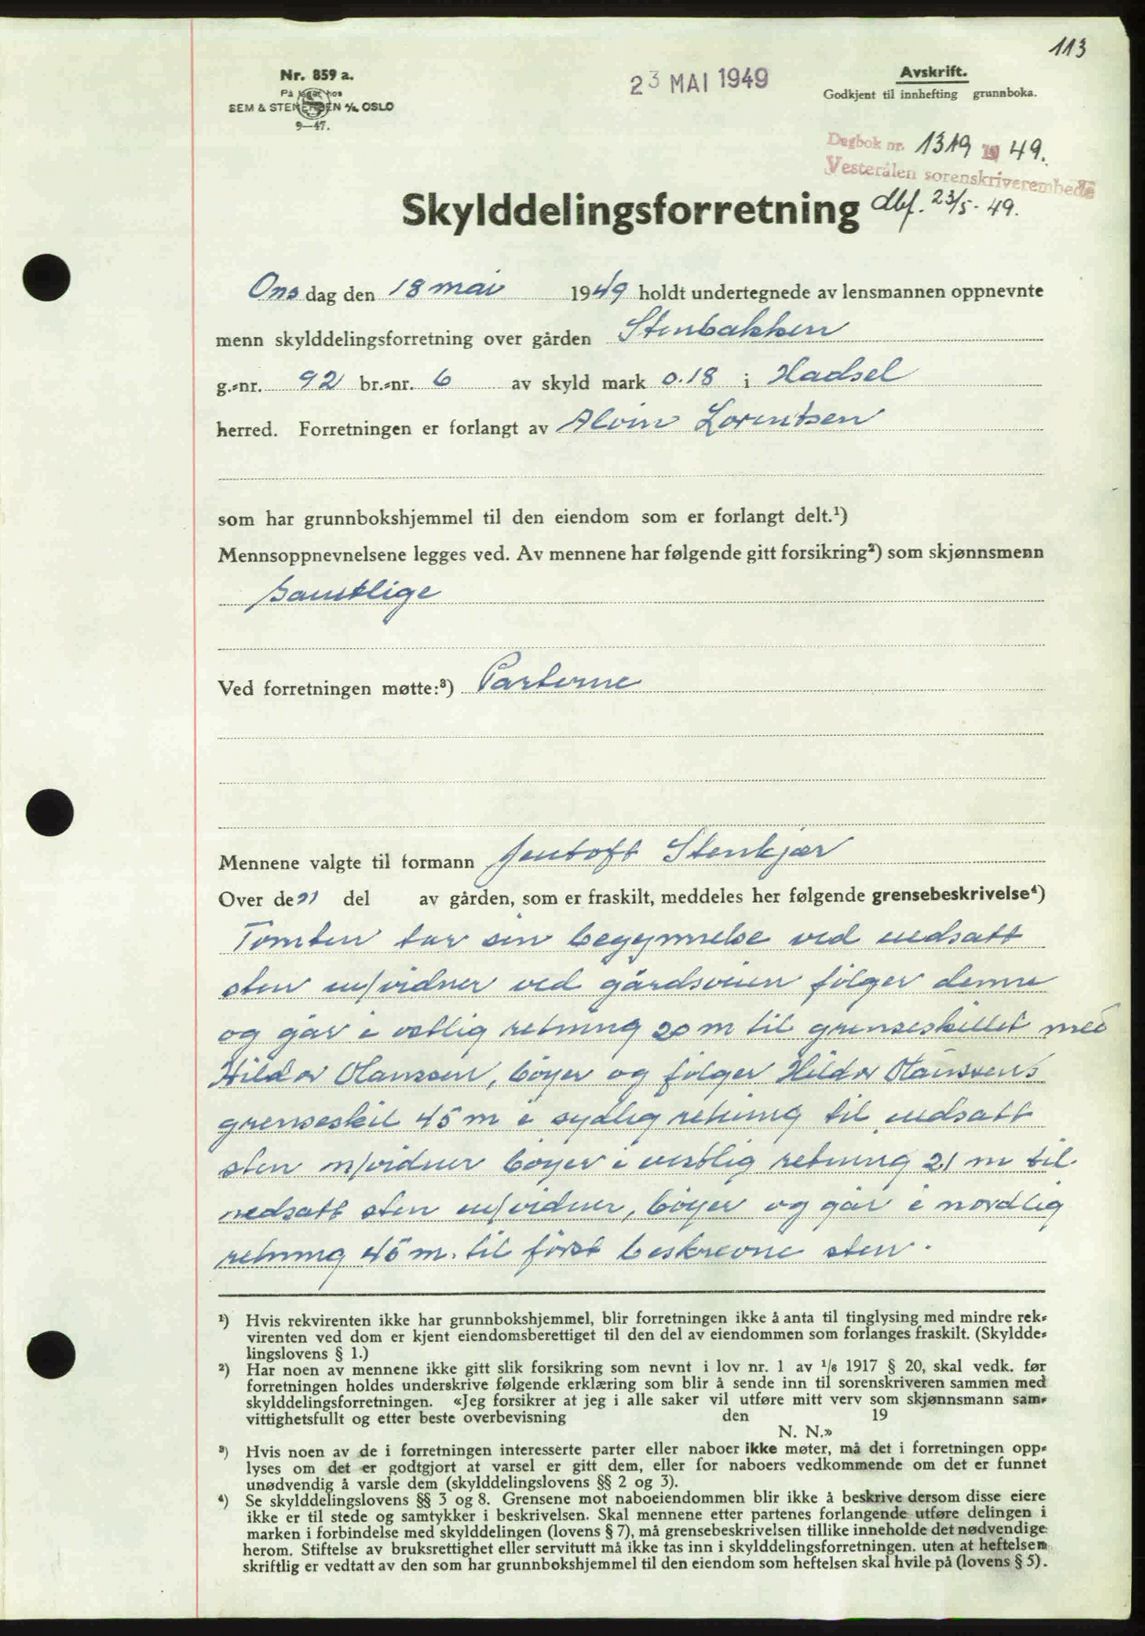 113
Nr. 859 a.
På lager hos
SEM & STENERSEN A/S. OSLO
9—47.
23 MAI 1949
Avskrift.
Godkjent til innhefting grunnboka.
Dagbok nr. 1319 19 49.
Vesterålen sorenskriverembede
dbf. 23/5-49.
Skylddelingsforretning
Ons dag den 18 mai 1949 holdt undertegnede av lensmannen oppnevnte
menn skylddelingsforretning over gården Stenbakken
g.-nr. 92 br.-nr. 6 av skyld mark 0.18 i Hadsel
herred. Forretningen er forlangt av Alvin Lorentsen
som har grunnbokshjemmel til den eiendom som er forlangt delt.¹)
Mennsoppnevnelsene legges ved. Av mennene har følgende gitt forsikring²) som skjønnsmenn
samtlige
Ved forretningen møtte:³) Parterne
Mennene valgte til formann Jentoft Stenkjær
Over den del av gården, som er fraskilt, meddeles her følgende grensebeskrivelse⁴)
Tomten tar sin begynnelse ved nedsatt
sten m/vidner ved gårdsveien følger denne
og går i vestlig retning 20 m til grenseskillet med
Hildor Olanssen, böyer og fölger Hildor Olanssens
grenseskil 45 m i sydlig retning til nedsatt
sten m/vidner böyer i vestlig retning 21 m til
nedsatt sten m/vidner, böyer og går i nordlig
retning 45 m. til först beskrevne sten.
¹) Hvis rekvirenten ikke har grunnbokshjemmel, blir forretningen ikke å anta til tinglysing med mindre rek-
virenten ved dom er kjent eiendomsberettiget til den del av eiendommen som forlanges fraskilt. (Skyldde-
lingslovens § 1.)
²) Har noen av mennene ikke gitt slik forsikring som nevnt i lov nr. 1 av 1/6 1917 § 20, skal vedk. før
forretningen holdes underskrive følgende erklæring som blir å sende inn til sorenskriveren sammen med
skylddelingsforretningen. «Jeg forsikrer at jeg i alle saker vil utføre mitt verv som skjønnsmann sam-
vittighetsfullt og etter beste overbevisning den 19
N. N.»
³) Hvis noen av de i forretningen interesserte parter eller naboer ikke møter, må det i forretningen opp-
lyses om det er godtgjort at varsel er gitt dem, eller for naboers vedkommende om det er funnet
unødvendig å varsle dem (skylddelingslovens §§ 2 og 3).
⁴) Se skylddelingslovens §§ 3 og 8. Grensene mot naboeiendommen blir ikke å beskrive dersom disse eiere
ikke er til stede og samtykker i beskrivelsen. Skal mennene etter partenes forlangende utføre delingen i
marken i forbindelse med skylddelingen (lovens § 7), må grensebeskrivelsen tillike inneholde det nødvendige
herom. Stiftelse av bruksrettighet eller servitutt må ikke tas inn i skylddelingsforretningen. uten at heftelsen
skriftlig er vedtatt av den som har grunnbokshjemmel til den eiendom som heftelsen skal hvile på (lovens § 5).